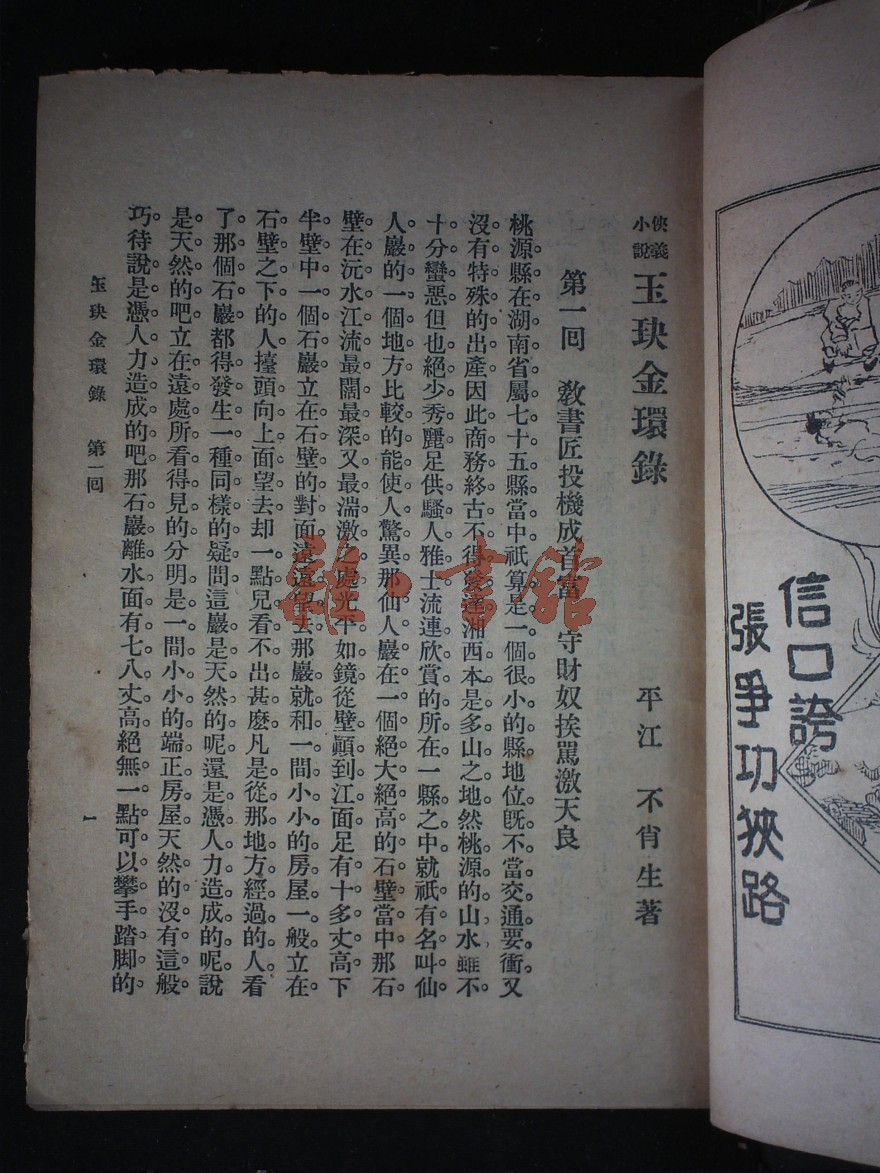 信口誇
張爭功狹路
俠義小說 玉玦金環錄
平江 不肖生著
第一回 教書匠投機成首富 守財奴挨罵激天良
桃源縣在湖南省屬七十五縣當中。祇算是一個很小的縣。地位旣不當交通要衝。又
沒有特殊的出產。因此商務終古不得發達。湘西本是多山之地。然桃源的山水、雖不
十分蠻惡。但也絕少秀麗足供騷人雅士流連欣賞的所在。一縣之中。就祇有名叫仙
人巖的一個地方。比較的能使人驚異。那仙人巖在一個絕大絕高的石壁當中。那石
壁在沅水江流最闊最深又最湍激之處。光平如鏡。從壁顚到江面。足有十多丈高下。
半壁中一個石巖。立在石壁的對面。遠遠望去。那巖就和一間小小的房屋一般。立在
石壁之下的人。擡頭向上面望去。却一點兒看不出甚麽。凡是從那地方經過的人。看
了那個石巖。都得發生一種同樣的疑問。這巖是天然的呢。還是憑人力造成的呢。說
是天然的吧。立在遠處所看得見的。分明是一間小小的端正房屋。天然的沒有這般
巧。待說是憑人力造成的吧。那石巖離水面有七八丈高。絕無一點可以攀手踏脚的
玉玦金環錄 第一回
一
雜·書館